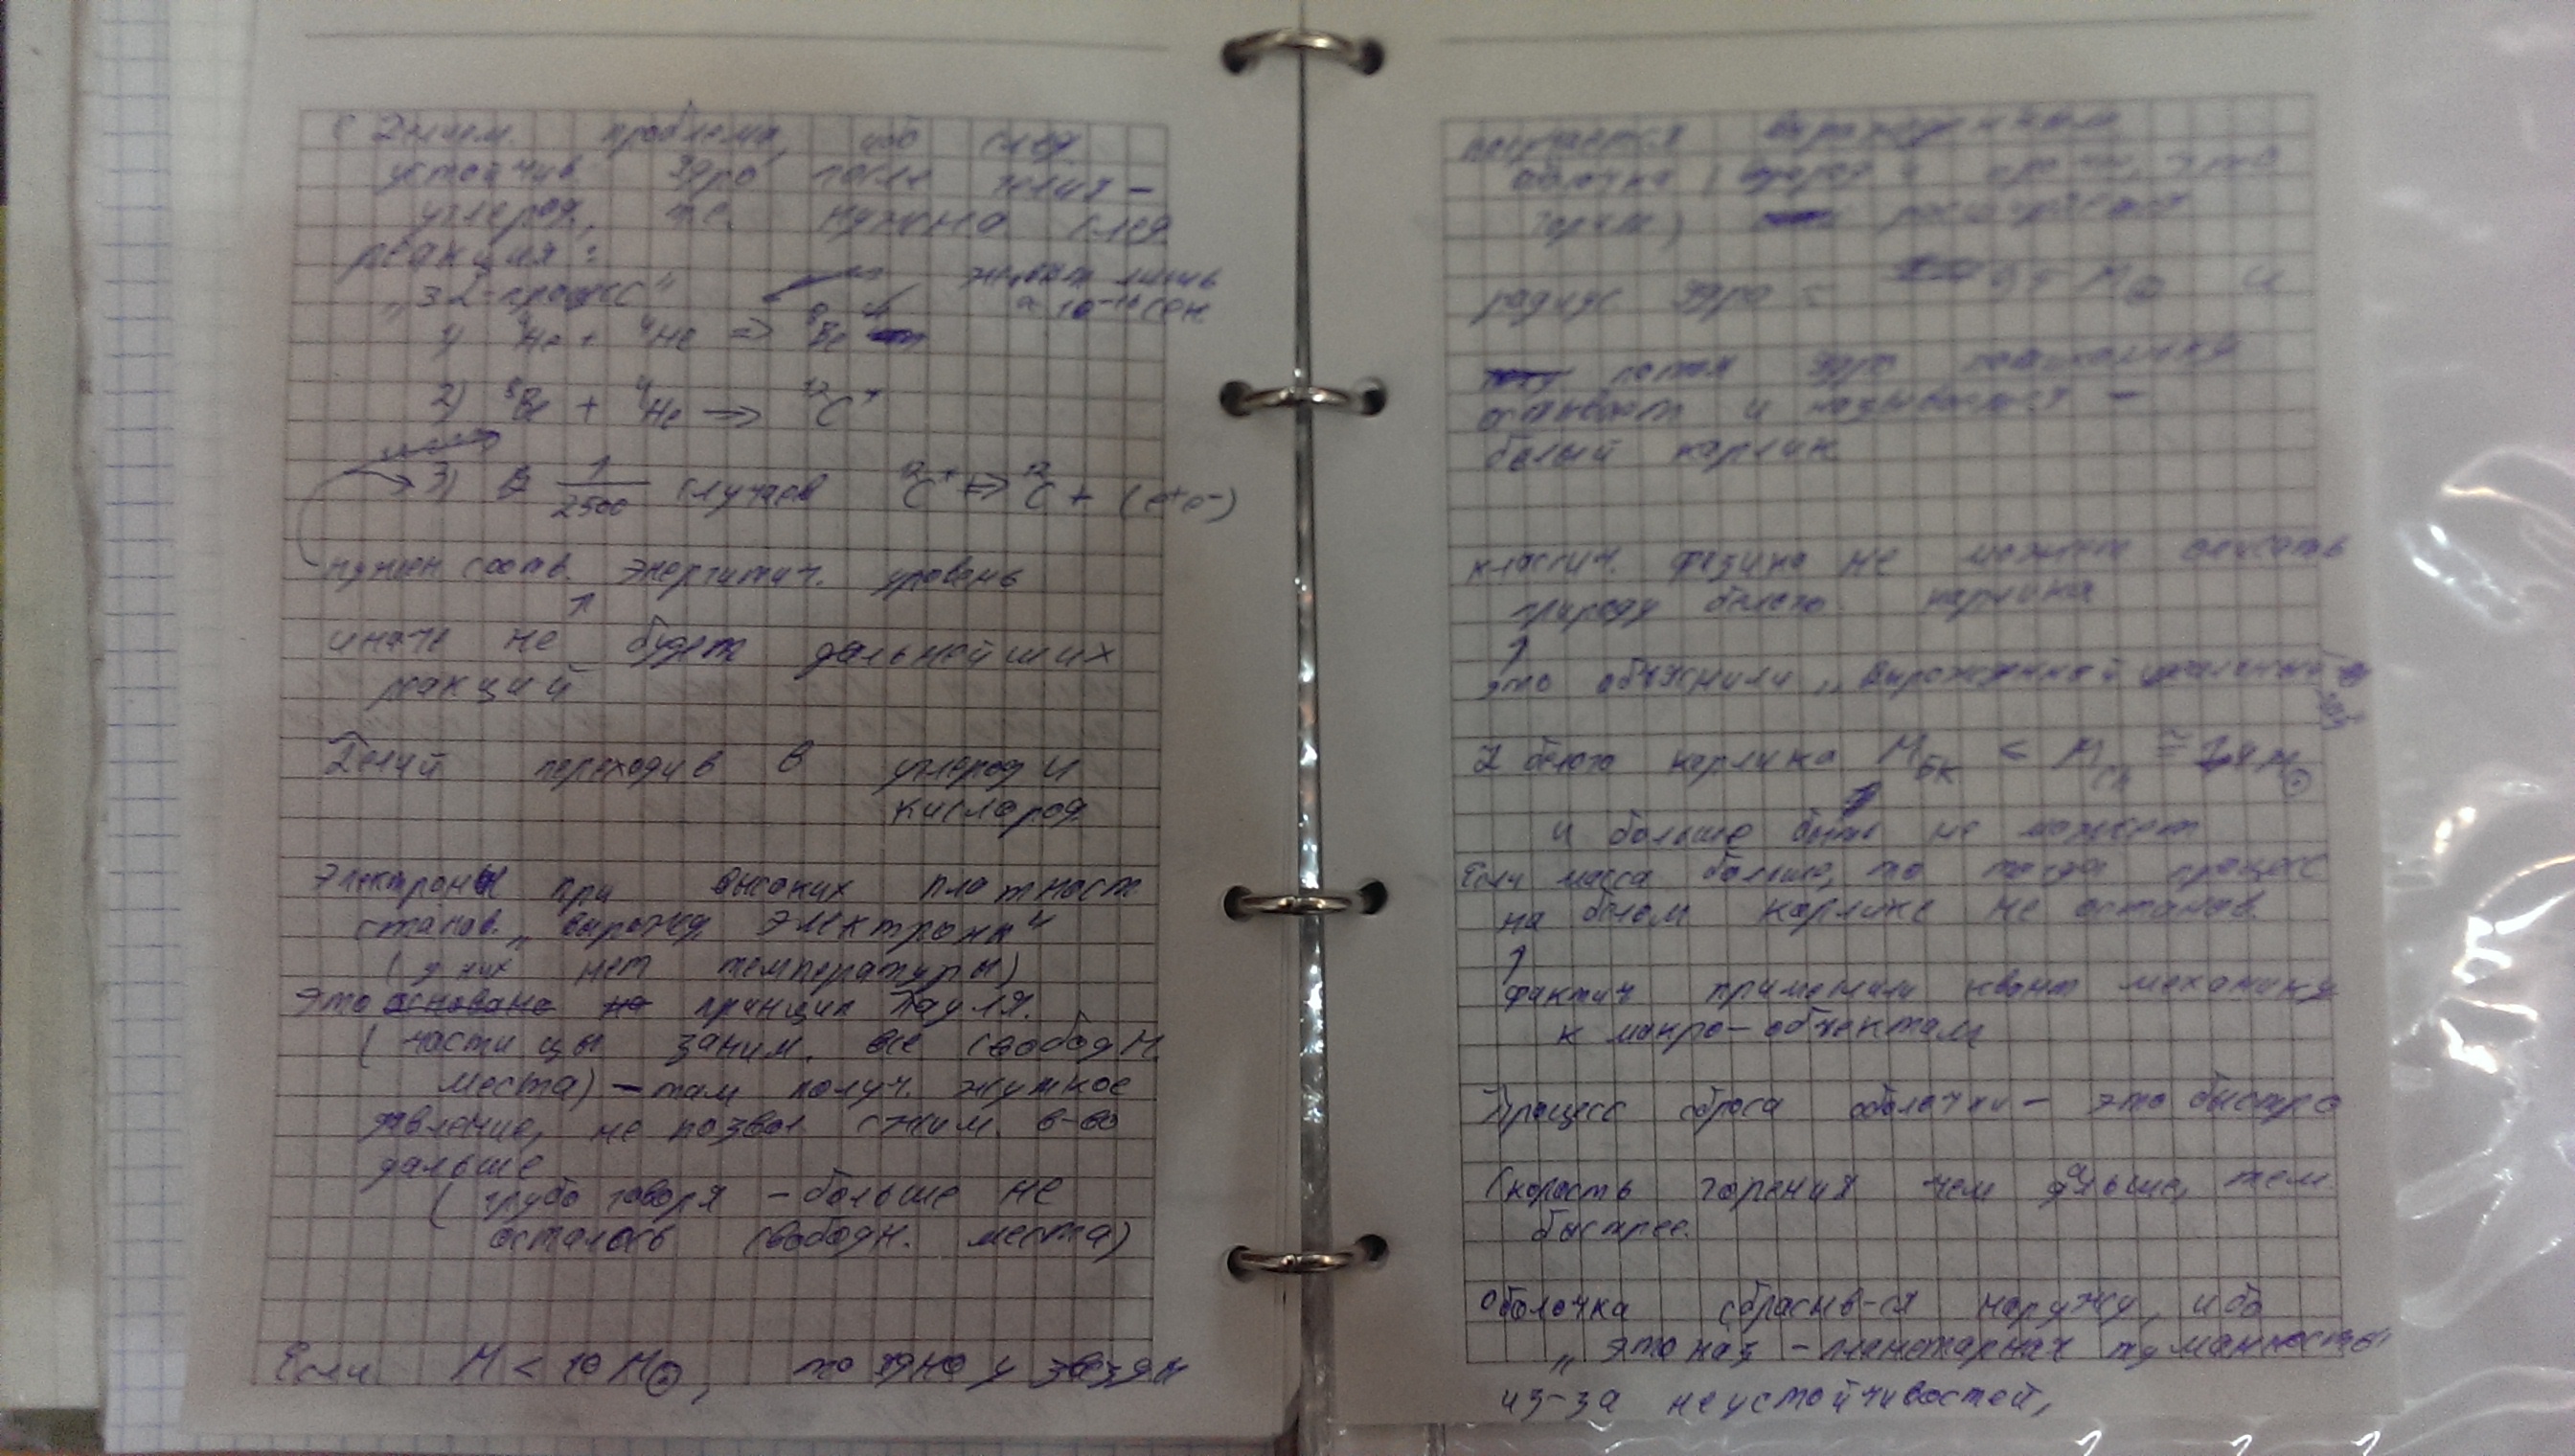 с Гелием проблема, ибо след
устойчив. ядро после гелия –
углерод, т.е. нужна след.
реакция:
„3α-процесс“ живёт лишь
≈ 10⁻¹⁶ сек.
1) ⁴He + ⁴He => ⁸Be
2) ⁸Be + ⁴He => ¹²C*
3) В 1/2500 случаев ¹²C* => ¹²C + (e⁺e⁻)
нужен соотв. энергитич. уровень
иначе не будет дальнейших
реакций
Гелий переходив в углерод и
кислород
Электроны при высоких плотност
станов. „вырожд электроны“
(у них нет температуры)
Это основано на принцип Пауля.
(частицы заним. все свободн.
места) – там получ. жуткое
давление, не позвол сжим. в-во
дальше
(грубо говоря – больше не
осталось свободн. места)
Если M < 10 M☉, то ядно у звезды
получается вырожденным
оболочка
горят) расширяется
радиус ядра = M☉ и
потом ядро потихоньку
остывает и называется –
белый карлик
классич. физика не может описать
природу белого карлика
это объяснили „вырожденной
У белого карлика M БК < M ≅ M☉
и больше быть не может
Если масса больше, то тогда процесс
на белом карлике не останов.
фактич применили квант механику
к макро-объектам
Процесс сброса оболочки – это быстро
Скорость горения чем дальше, тем
быстрее.
Оболочка сбрасыв-ся наружу, ибо
„это наз – планетарная туманность
из-за неустойчивостей,